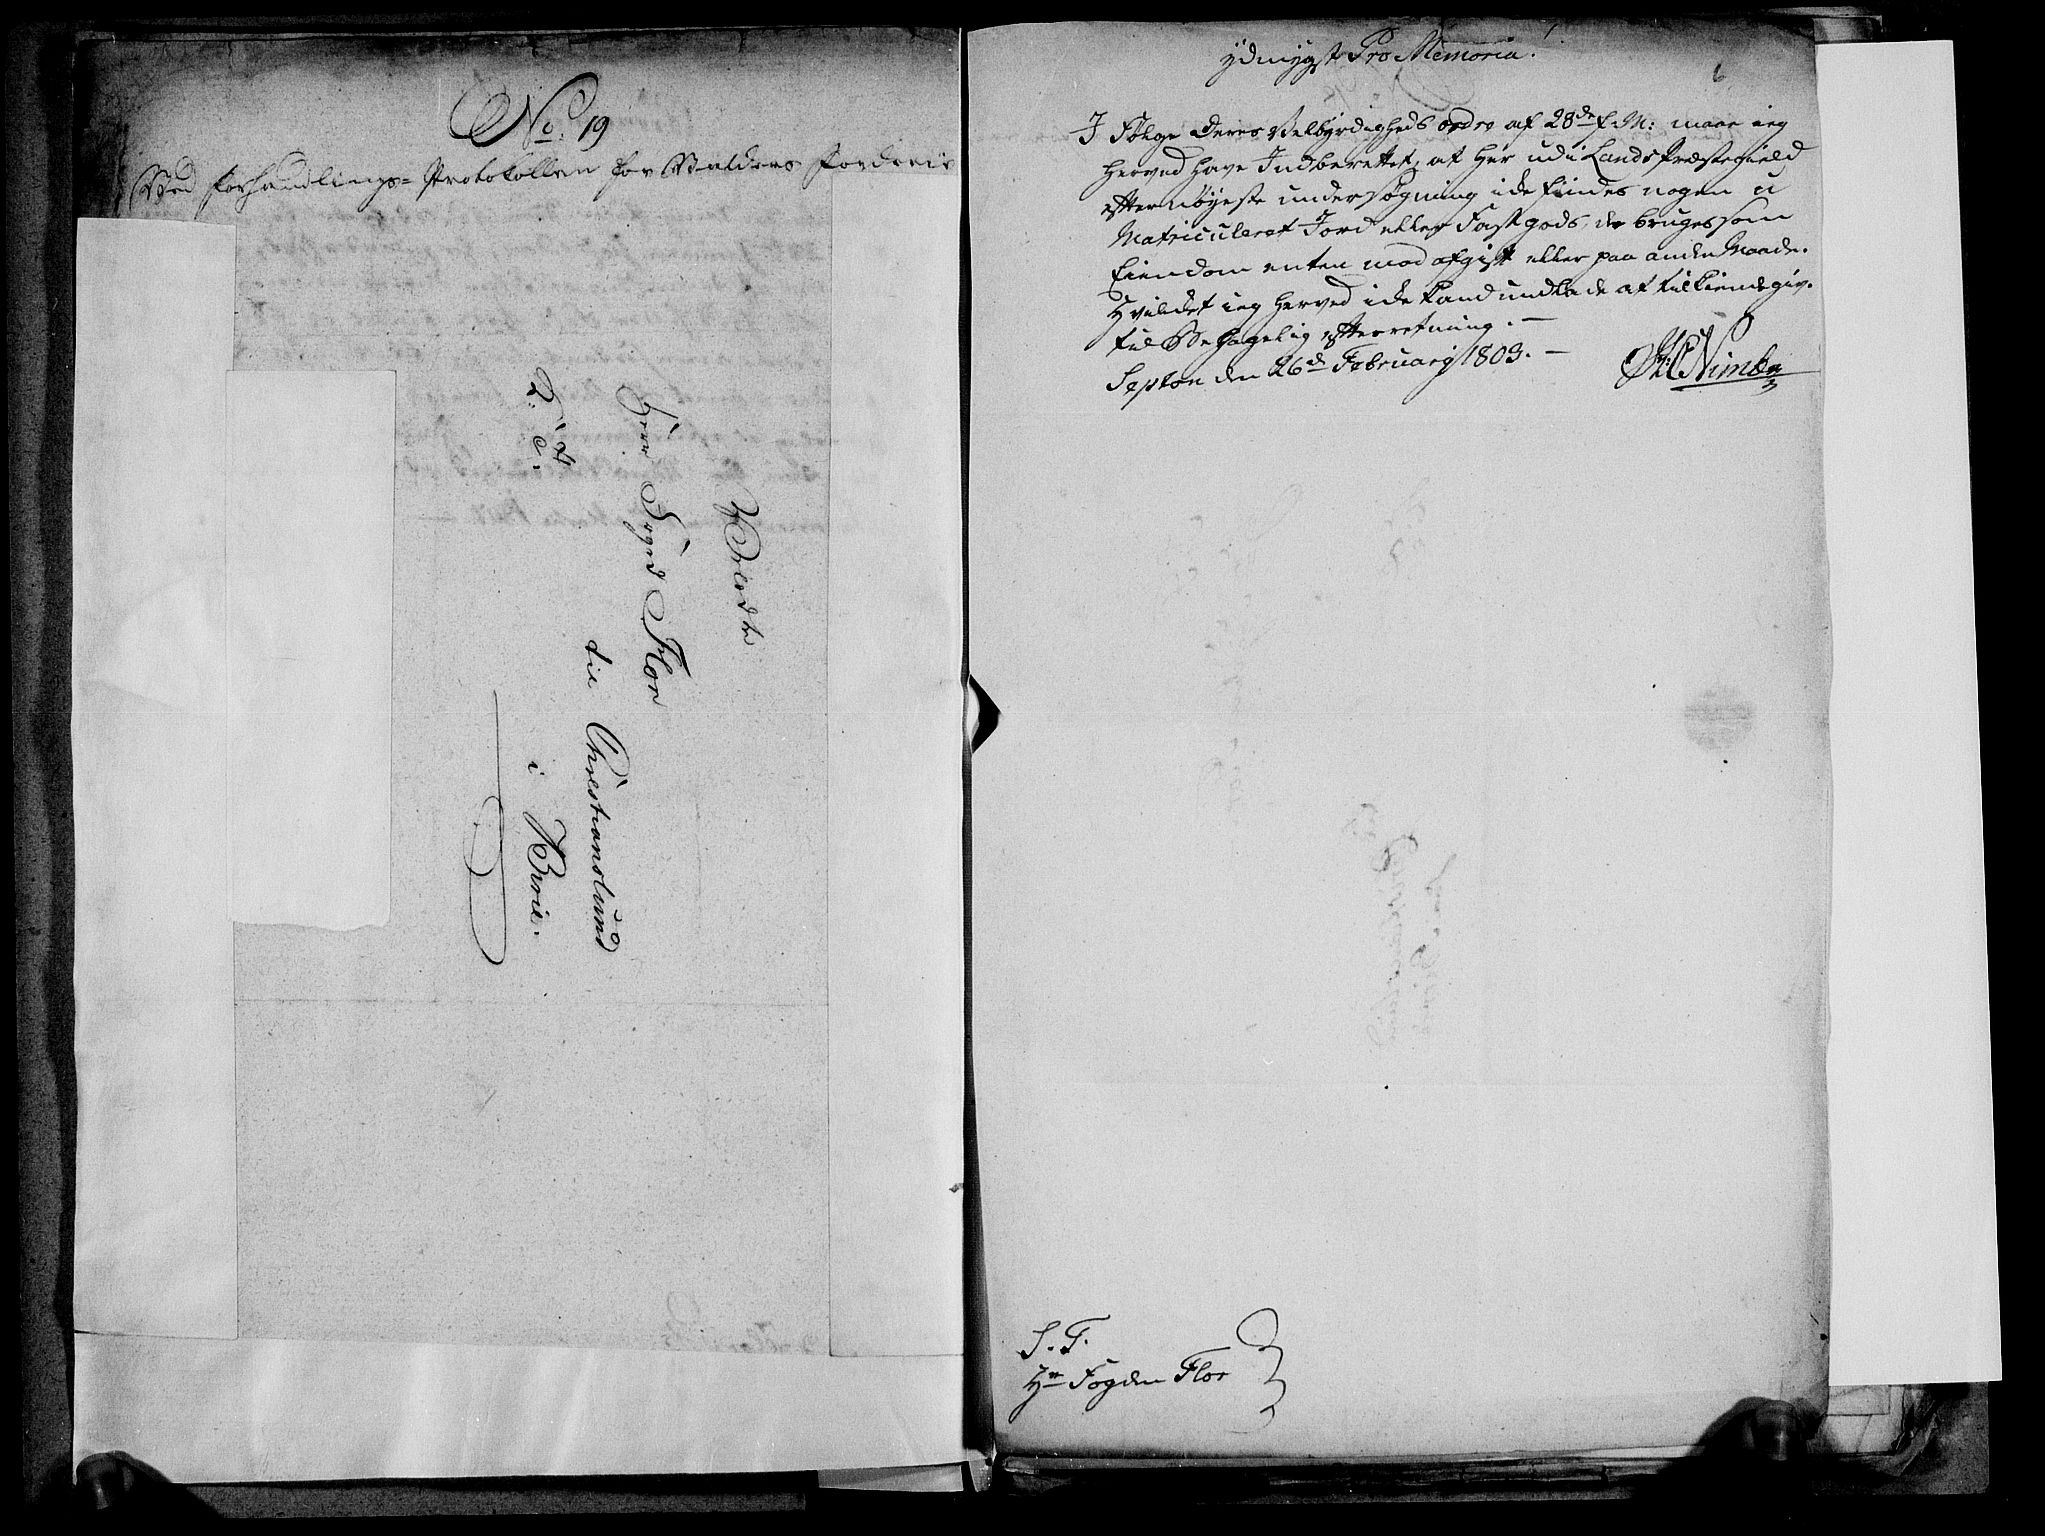 No: 19
Ved Forhandlings-Protokollen for Valders Fogderie
Velædle
Herr Foged Flor
til Chrestianslund
i
ydmygst Pro Memoria.
6
I Følge Deres Velbyrdigheds ordre af 28de f. M: maae ieg
herved have Indberettet, at her udi Lands Præstegield
efter nøyeste undersøgning icke findes nogen u
Matriculeret Jord eller Fast gods, der bruges som
Eiendom enten mod afgift eller paa anden Maade.
Hvilcket ieg herved icke kand undlade at tilkiendegiv.
til Behagelig efterretning. —
den 26de February 1803. —
S. T.
Hr Fogden Flor